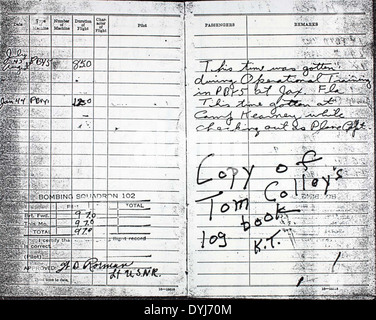 Date
Type Machine
Number of Machine
Duration of Flight
Character of Flight
Pilot
July
43 PBY5 850
Jan 44 PBY 1250
BOMBING SQUADRON 102
TOTAL
Brt. Fwd. 9 20
This Mo. 9 20
Total 9 20
I certify the flight record
is correct.
(Pilot)
APPROVED:
Lt U.S.N.R.
PASSENGERS
REMARKS
This time was gotten
during Operational Training
in PBY5 at Jax. Fla
This time gotten at
Camp Kearney while
checking out as Plane
Copy of
Tom Colley's
log book
K.T.
alamy
DYJ70M